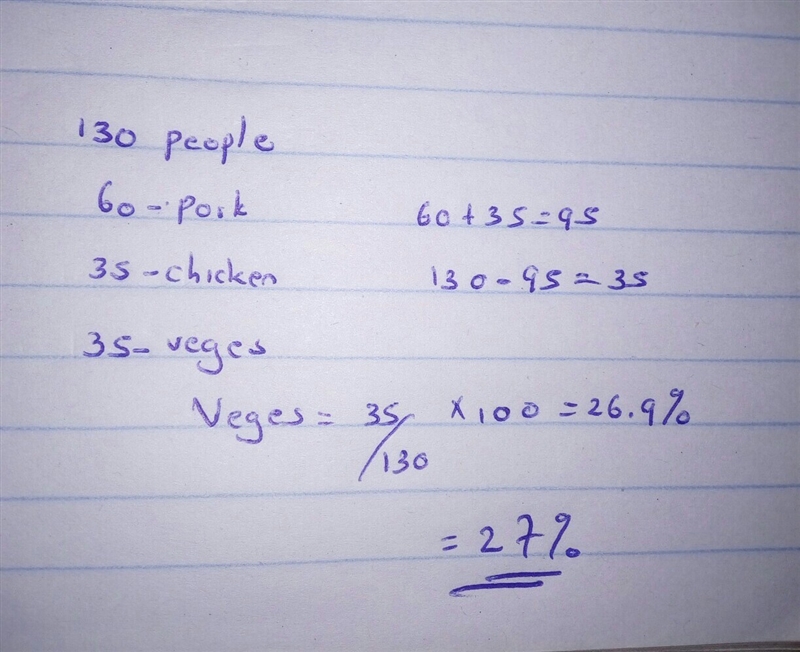 130 people
60 - pork 60 + 35 = 95
35 - chicken 130 - 95 = 35
35 - veges
Veges = 35/130 × 100 = 26.9%
= 27%